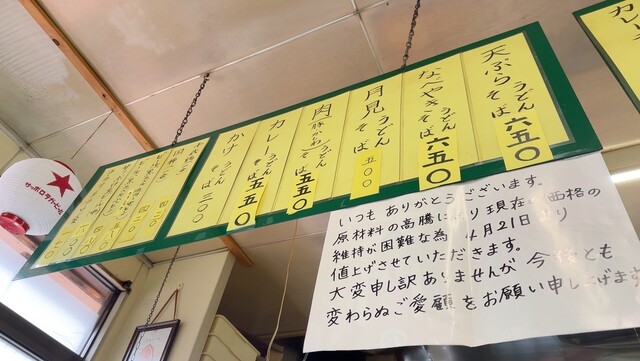 天ぷら うどん そば 六五〇
なべやき うどん そば 六五〇
月見 うどん そば 五〇〇
肉(豚かわ) うどん そば 五五〇
カレー うどん そば 五五〇
かけ うどん そば 三〇〇
いつも ありがとうございます。
原材料の高騰により 現在の価格の
維持が困難な為 4月21日より
値上げさせていただきます。
大変申し訳ありませんが 今後とも
変わらぬご愛顧をお願い申し上げます
サッポロ生ビール
カレー